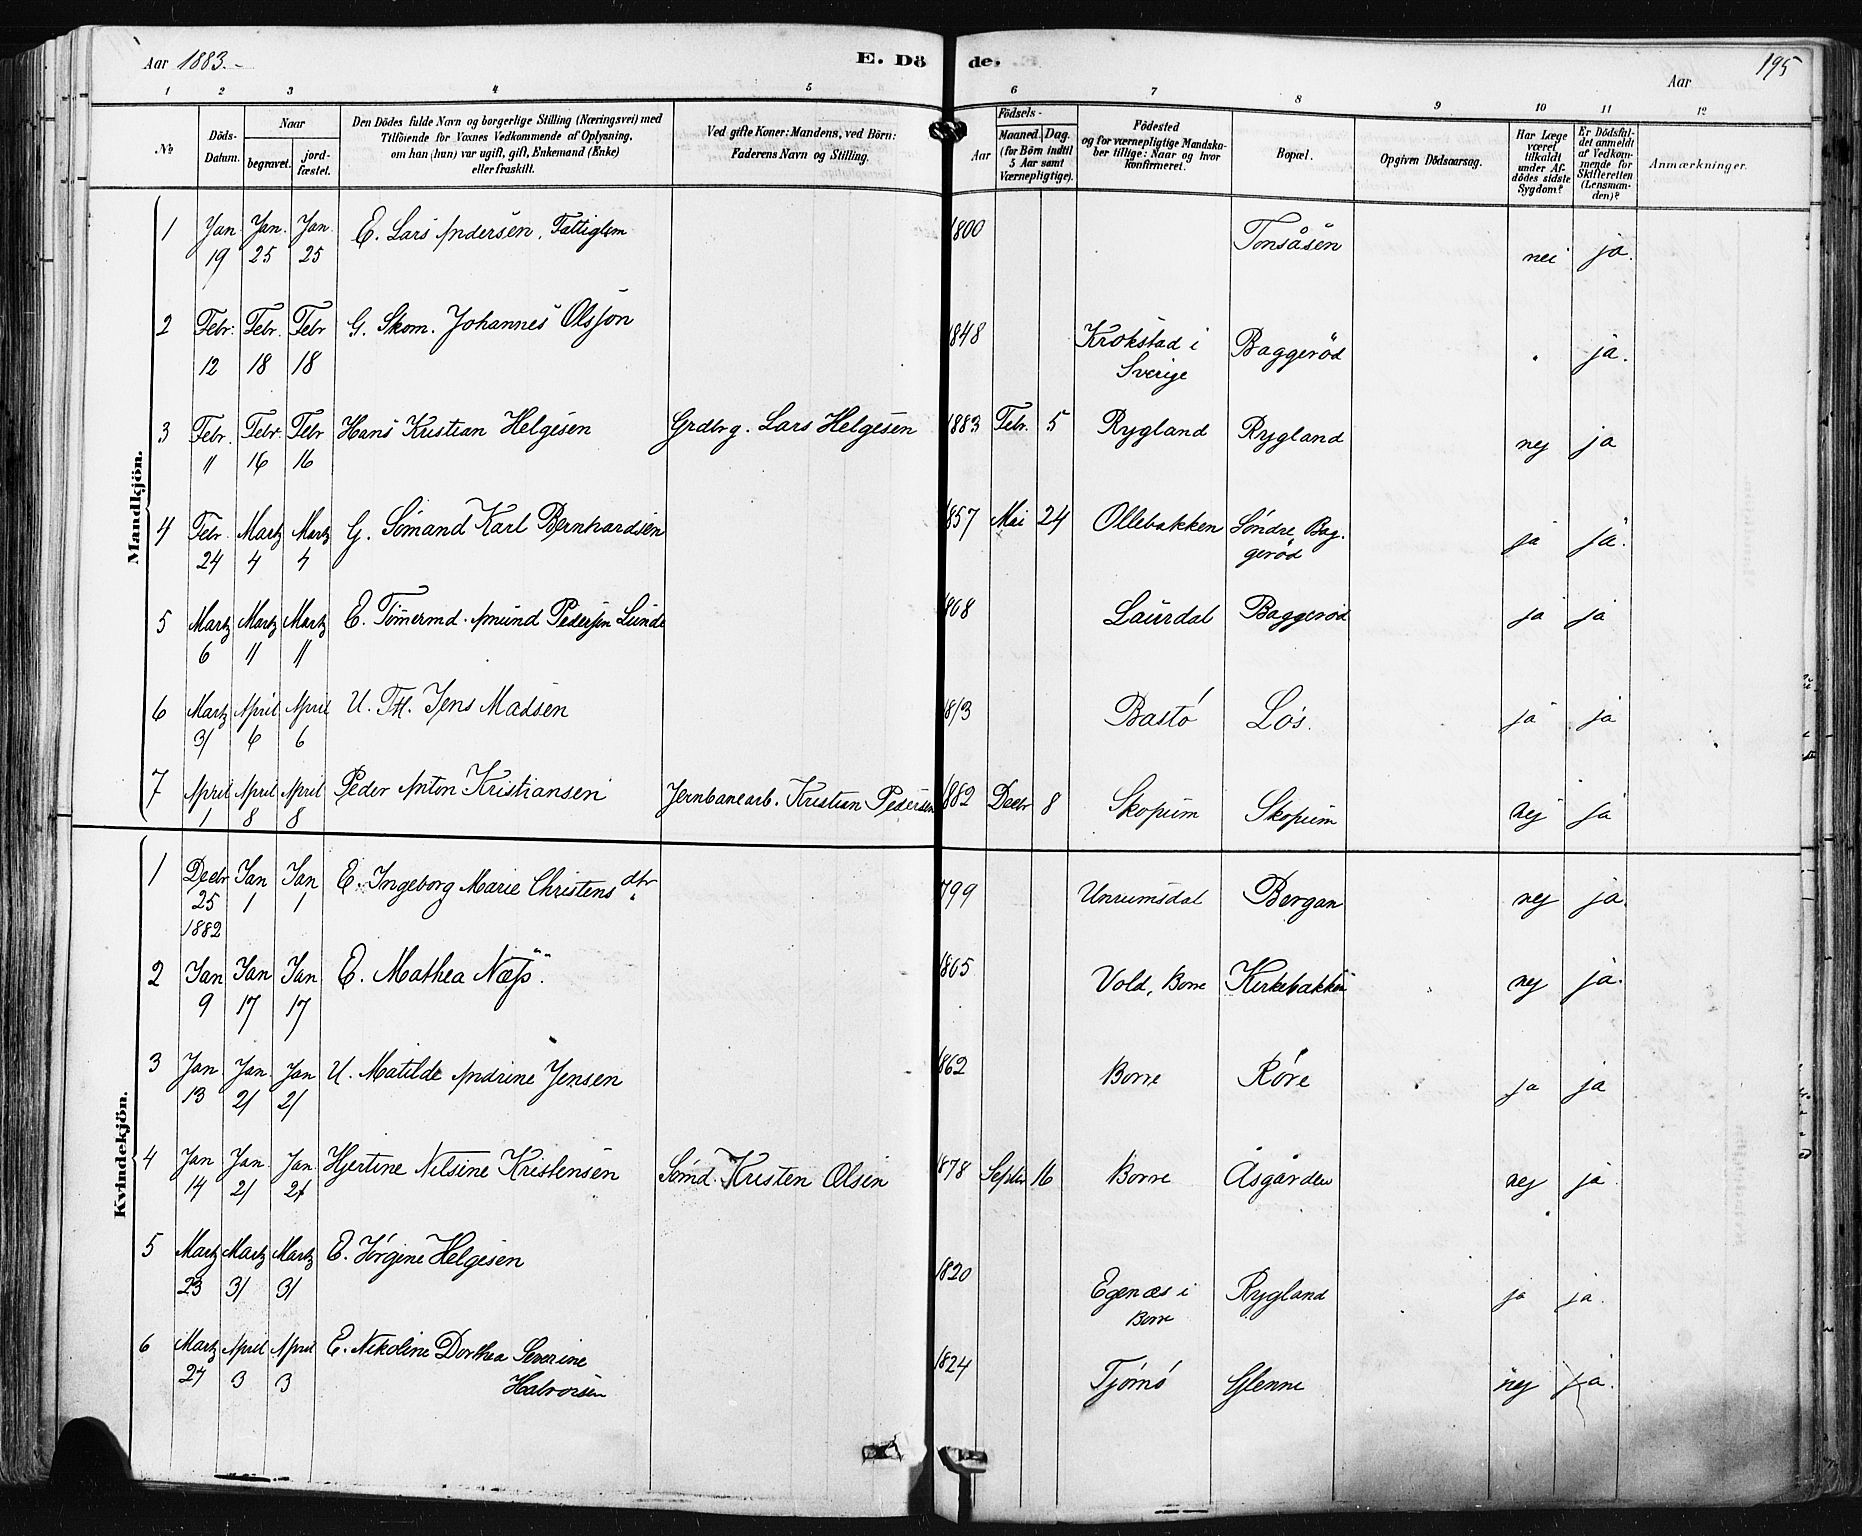 Aar 1883.-
E. Dö de.
Aar
195
1 2 3 4 5 6 7 8 9 10 11 12
No
Döds-
Datum.
Naar
begravet.
jord-
fæstet.
Den Dödes fulde Navn og borgerlige Stilling (Næringsvei) med
Tilföiende for Voxnes Vedkommende af Oplysning,
om han (hun) var ugift, gift, Enkemand (Enke)
eller fraskilt.
Ved gifte Koner: Mandens, ved Börn:
Faderens Navn og Stilling.
Födsels-
Aar
Maaned. Dag.
(for Börn indtil
5 Aar samt
Værnepligtige).
Födested
og for værnepligtige Mandska-
ber tillige: Naar og hvor
konfirmeret.
Bopæl.
Opgiven Dödsaarsag.
Har Læge
været
tilkaldt
under Af-
dödes sidste
Sygdom?
Er Dödsfal-
det anmeldt
af Vedkom-
mende for
Skifteretten
(Lensman-
den)?
Anmærkninger.
Mandkjön.
1 Jan. Jan. Jan. E. Lars Andersen. Fattiglem 1800 Tonsåsen nei ja.
19 25 25
2 Febr. Febr. Febr G. Skom. Johannes Olsson 1848 Krokstad i Baggeröd ja.
12 18 18 Sverige
3 Febr. Febr. Febr Hans Kristian Helgesen Grdbrg. Lars Helgesen 1883 Febr. 5 Rygland Rygland nej ja
11 16 16
4 Febr. Martz Martz G. Sömand Karl Bernhardsen 1857 Mai 24 Ollebakken Söndre Bag-
24 4 4 geröd ja ja.
5 Martz Martz Martz E. Tömermd. Amund Pedersen Lunde Laurdal Baggeröd ja ja
6 11 11
6 Martz April April U. Jens Madsen Bastö Lös. ja ja
31 6 6
7 April April April Peder Anton Kristiansen Jernbanearb. Kristian Pedersen 1882 Decbr 8 Skopum Skopum nej ja
1 8 8
Kvindekjön.
1 Decbr Jan Jan E. Ingeborg Marie Christensdtr. 1799 Bergan nej ja.
25 1 1
1882
2 Jan Jan Jan E. Mathea Næss. Vold, Borre Kirkebakken nej ja.
9 17 17
3 Jan Jan Jan U. Matilde Andrine Jensen 1862 Borre Röre ja ja
13 21 21
4 Jan Jan. Jan. Hjertine Nilsine Kristensen Sömd. Kristen Olsen 1878 Septbr 16 Borre Åsgården nej ja
14 21 21
5 Martz Martz Martz E. Jörgine Helgesen 1820 Egenæs i Rygland ja ja.
23 31 31 Borre
6 Martz April April E. Nikoline Dorthea Severine 1824 Tjömö Glenne nej ja.
24 3 3 Halvorsen